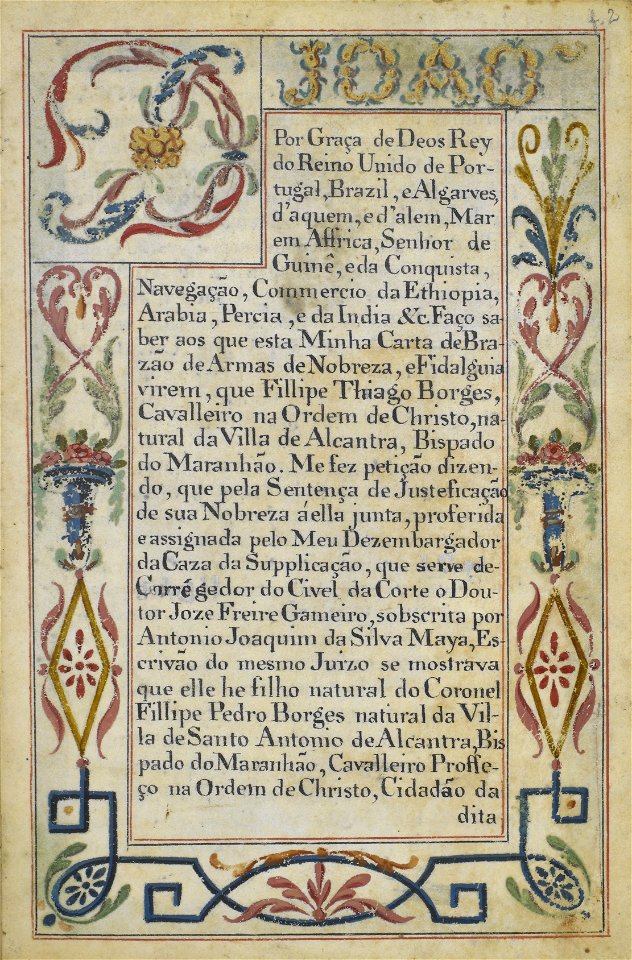 f. 2
JOAÕ
Por Graça de Deos Rey
do Reino Unido de Por-
tugal, Brazil, e Algarves,
d'aquem, e d'alem, Mar
em Affrica, Senhor de
Guinê, e da Conquista,
Navegação, Commercio da Ethiopia,
Arabia, Percia, e da India &c. Faço sa-
ber aos que esta Minha Carta de Bra-
zão de Armas de Nobreza, e Fidalguia
virem, que Fillipe Thiago Borges,
Cavalleiro na Ordem de Christo, na-
tural da Villa de Alcantra, Bispado
do Maranhão. Me fez petição dizen-
do, que pela Sentença de Justeficação
de sua Nobreza áella junta, proferida
e assignada pelo Meu Dezembargador
da Caza da Supplicação, que serve de-
Corrégedor do Civel da Corte o Dou-
tor Joze Freire Gameiro, sobscrita por
Antonio Joaquim da Silva Maya, Es-
crivão do mesmo Juizo se mostrava
que elle he filho natural do Coronel
Fillipe Pedro Borges natural da Vil-
la de Santo Antonio de Alcantra, Bis
pado do Maranhão, Cavalleiro Proffe-
ço na Ordem de Christo, Cidadão da
dita